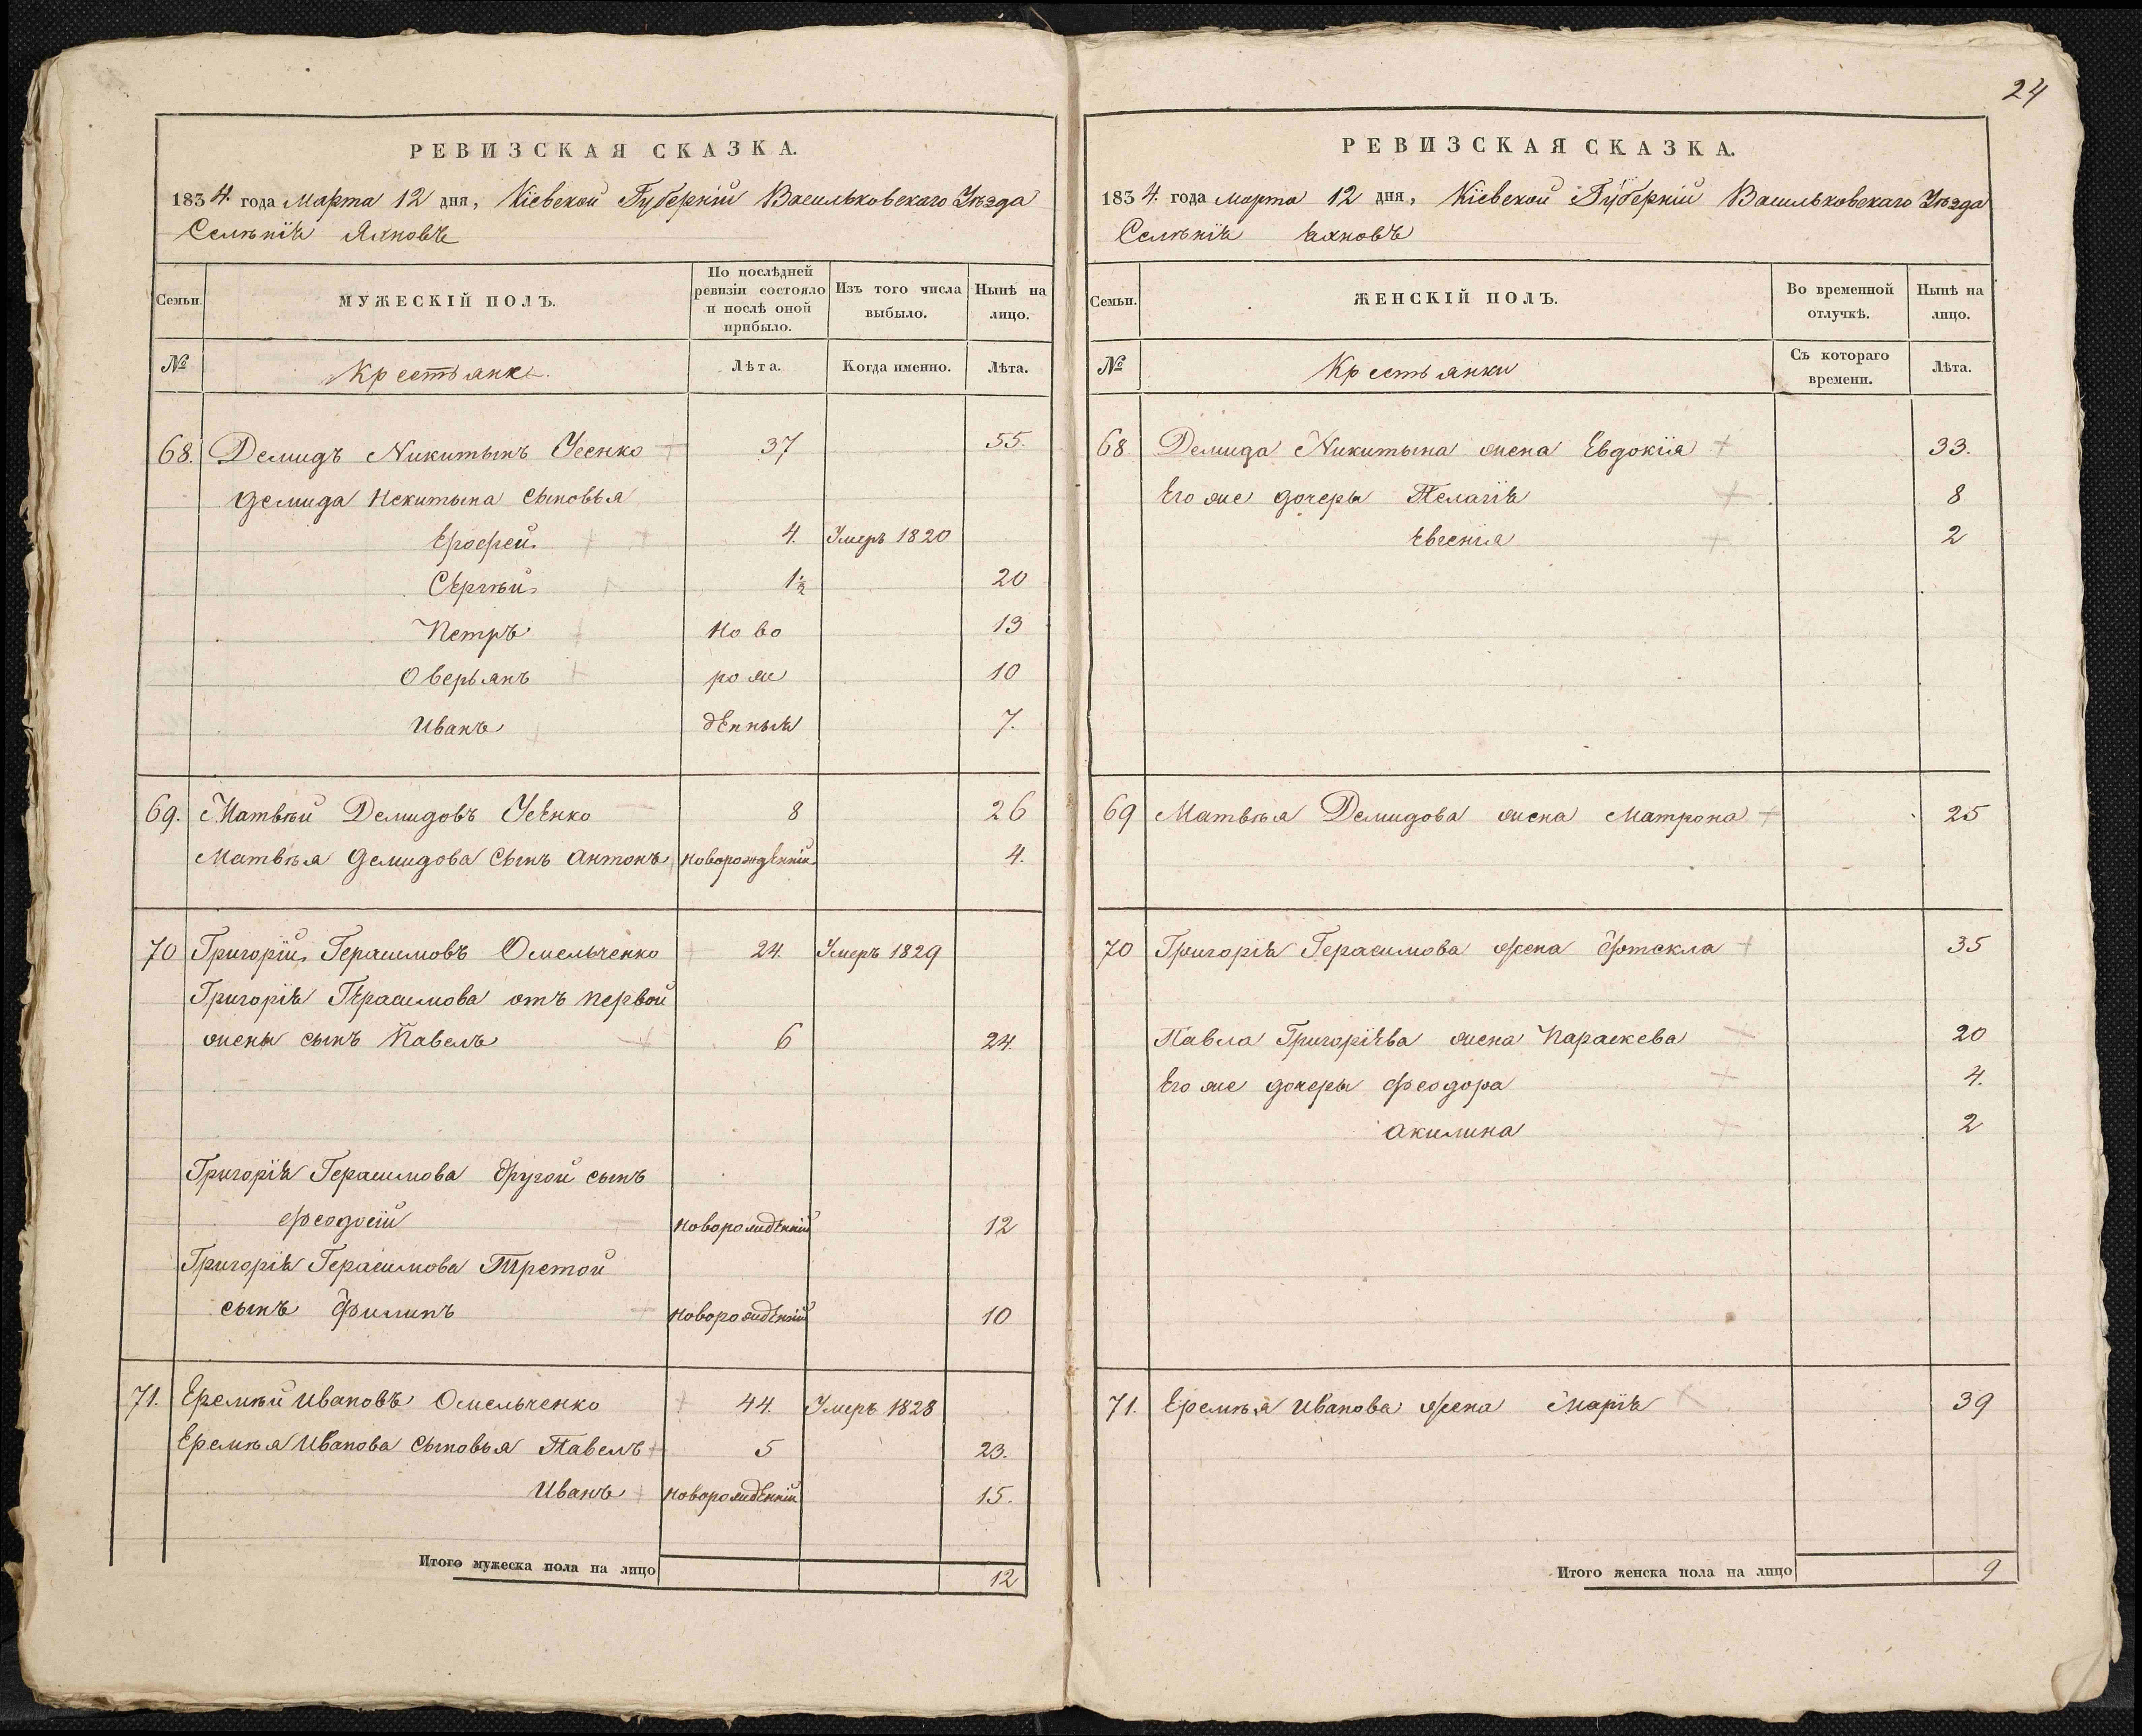 24
РЕВИЗСКАЯ СКАЗКА.
1834. года Марта 12 дня, Кіевской Губерніи Васильковскаго Уѣзда
Селѣнія Яхновъ
Семьи.
МУЖЕСКІЙ ПОЛЪ.
По послѣдней ревизіи состояло и послѣ оной прибыло.
Изъ того числа выбыло.
Нынѣ на лицо.
№
Крестьяне.
Лѣта.
Когда именно.
Лѣта.
68. Демидъ Никитынъ Усенко 37 55.
Демида Никитына сыновья
Ерофей 4. Умеръ 1820
Сергѣй 1½ 20
Петръ Ново 13
Оверьянъ рож 10
Иванъ денныя 7.
69. Матвѣй Демидовъ Усенко 8 26
Матвѣя Демидова сынъ Антонъ новорожденній 4.
70 Григорій Герасимовъ Омельченко 24. Умеръ 1829
Григорія Герасимова отъ первой
жены сынъ Павелъ 6 24.
Григорія Герасимова другой сынъ
Феодосій новорожденній 12
Григорія Герасимова Третой
сынъ Филипъ новорожденній 10
71. Еремѣй Ивановъ Омельченко 44. Умеръ 1828
Еремѣя Иванова сыновья Павелъ 5 23.
Иванъ новорожденній 15.
Итого мужеска пола на лицо 12
РЕВИЗСКАЯ СКАЗКА.
1834. года марта 12 дня, Кіевской Губерніи Васильковскаго Уѣзда
Селѣнія Яхновъ
Семьи.
ЖЕНСКІЙ ПОЛЪ.
Во временной отлучкѣ.
Нынѣ на лицо.
№
Крестьянки
Съ котораго времени.
Лѣта.
68 Демида Никитына жена Евдокія 33.
Его же дочеры Пелагія 8
Евгенія 2
69 Матвѣя Демидова жена Матрона 25
70 Григорія Герасимова жена Фтекла 35
Павла Григоріева жена Параскева 20
Его же дочеры Феодора 4.
Акилина 2
71. Еремѣя Иванова жена Марія 39
Итого женска пола на лицо 9